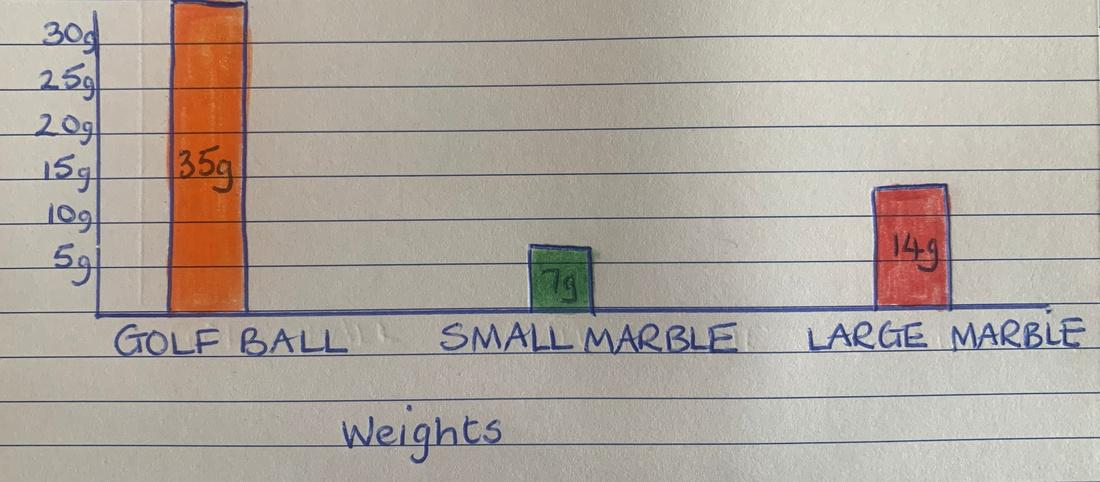 30g
25g
20g
15g
10g
5g
35g
7g
14g
GOLF BALL SMALL MARBLE LARGE MARBLE
Weights